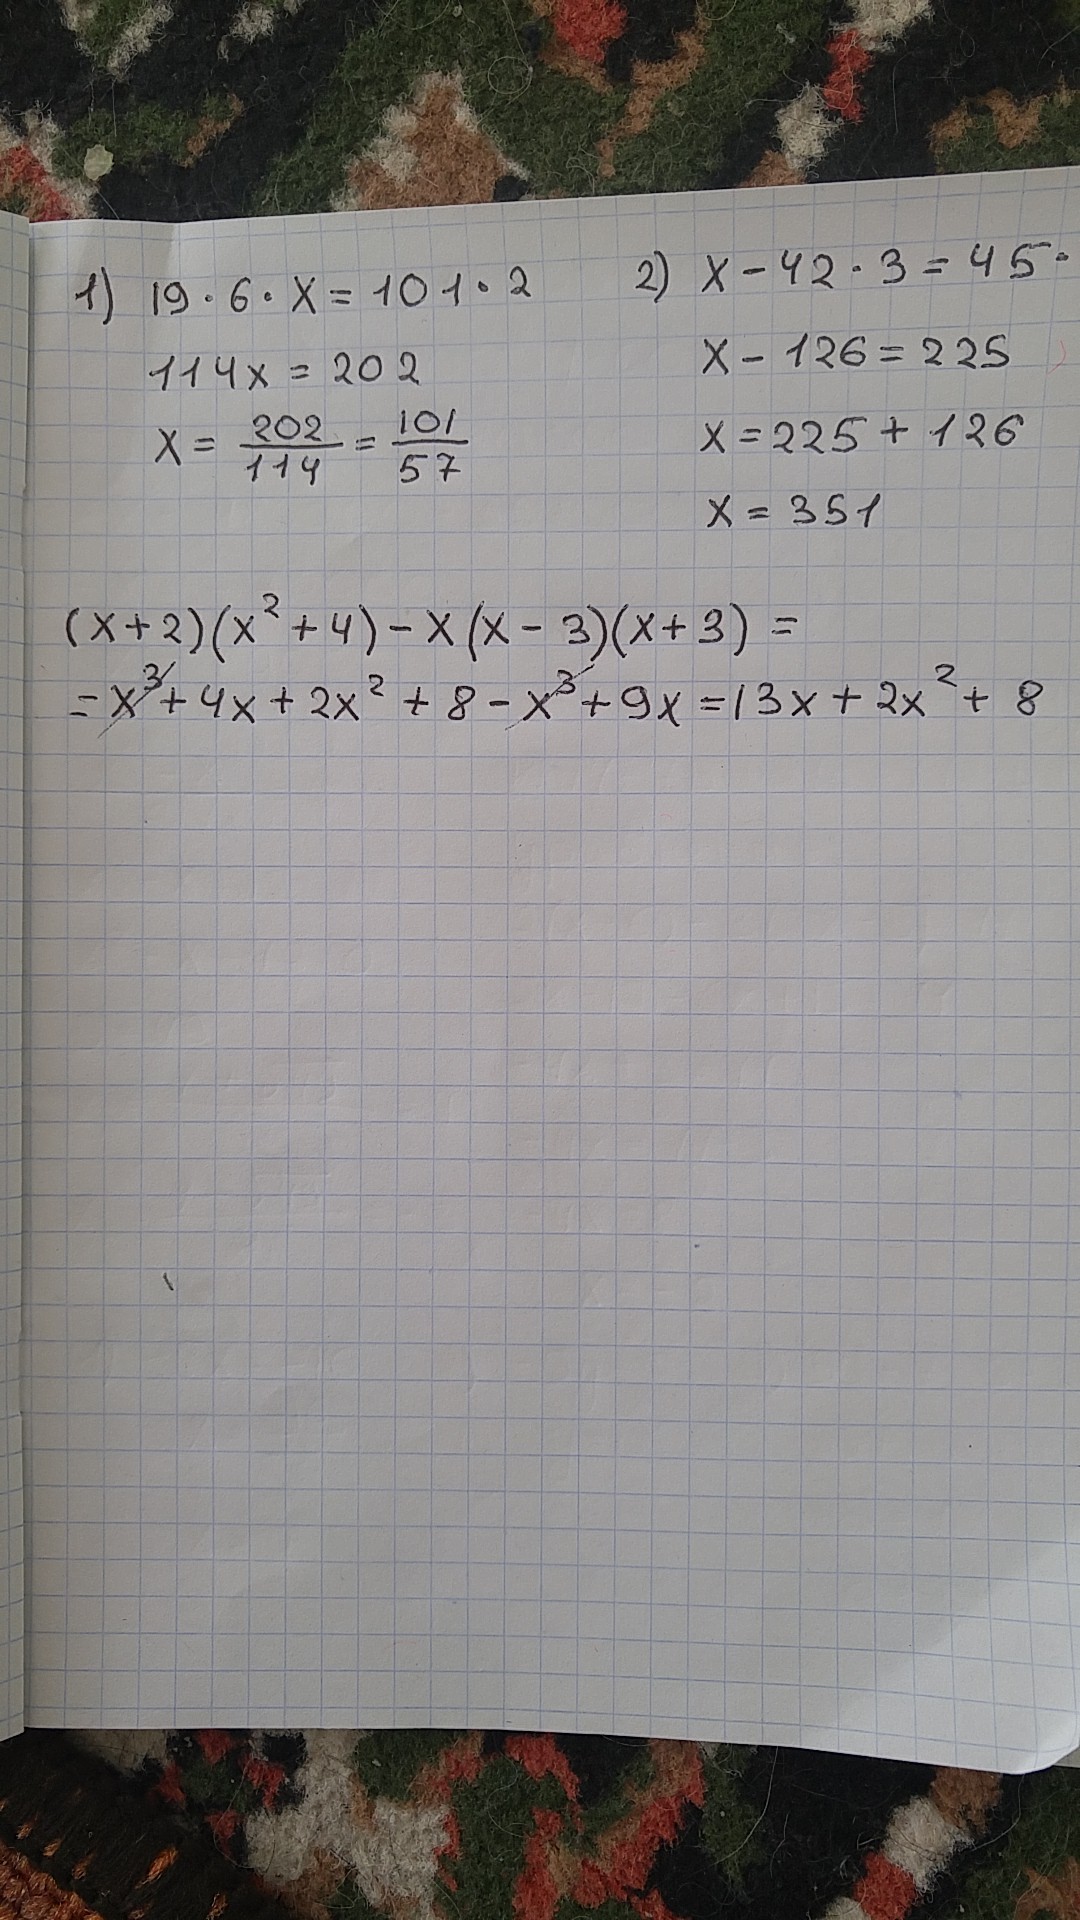 1) 19·6·x=101·2
114x=202
x=202/114=101/57
2) x-42·3=45·
x-126=225
x=225+126
x=351
(x+2)(x²+4)-x(x-3)(x+3)=
=x³+4x+2x²+8-x³+9x=13x+2x²+8